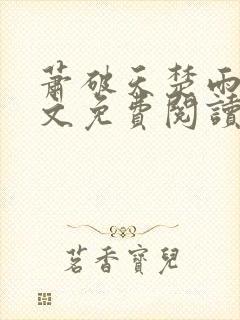 蕭破天楚雨
文免費閱讀
茗香寶兒